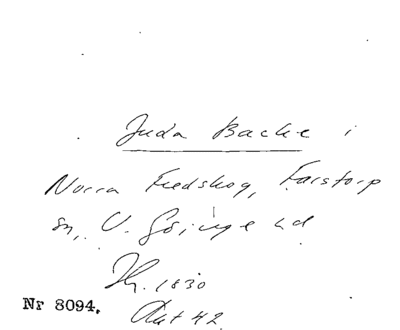 Juda Backe i
Norra Fredskog, Farstorp
sn, V. Göinge hd
Th. 1830
Nr 8094.
Aut 42